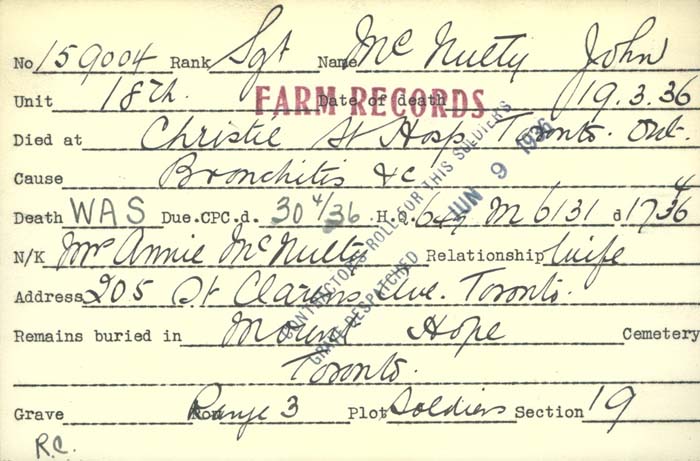 No 159004 Rank Sgt Name McNulty John
Unit 18th. Date of death 19.3.36
FARM RECORDS
Died at Christie St Hosp Toronto. Ont.
Cause Bronchitis &c
Death WAS Due.CPC.d. 30 4/36 H.Q. 649 M 6131 d 17 4 36
N/K Mrs Annie McNulty Relationship Wife
Address 205 St Clarens Ave. Toronto.
Remains buried in Mount Hope Cemetery
Toronto.
Grave Range 3 Plot Soldiers Section 19
R.C.
CONTRACTORS ROLL FOR THIS SOLDIER'S
GRAVE DESPATCHED
JUN 9 1936